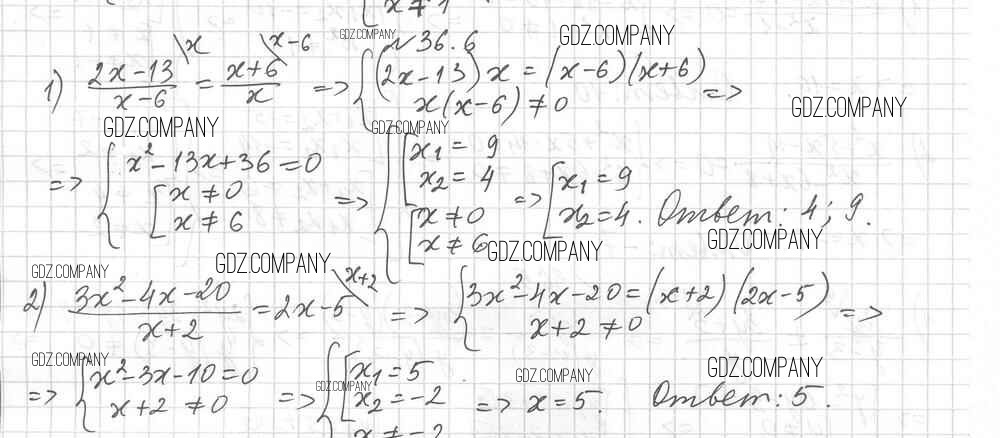 x ≠ 1
GDZ.COMPANY № 36.6 GDZ.COMPANY
1) (2x-13)/(x-6) \x = (x+6)/x \x-6 => { (2x-13)x = (x-6)(x+6)
x(x-6) ≠ 0 =>
GDZ.COMPANY
GDZ.COMPANY GDZ.COMPANY
=> { x²-13x+36=0
[ x ≠ 0
x ≠ 6
=> { [ x₁ = 9
x₂ = 4
[ x ≠ 0
x ≠ 6
=> [ x₁ = 9
x₂ = 4. Ответ: 4; 9.
GDZ.COMPANY GDZ.COMPANY GDZ.COMPANY GDZ.COMPANY
2) (3x²-4x-20)/(x+2) = 2x-5 \x+2 => { 3x²-4x-20=(x+2)(2x-5)
x+2 ≠ 0 =>
GDZ.COMPANY GDZ.COMPANY GDZ.COMPANY GDZ.COMPANY
=> { x²-3x-10=0
x+2 ≠ 0
=> { [ x₁ = 5
x₂ = -2
x ≠ -2
=> x=5. Ответ: 5.